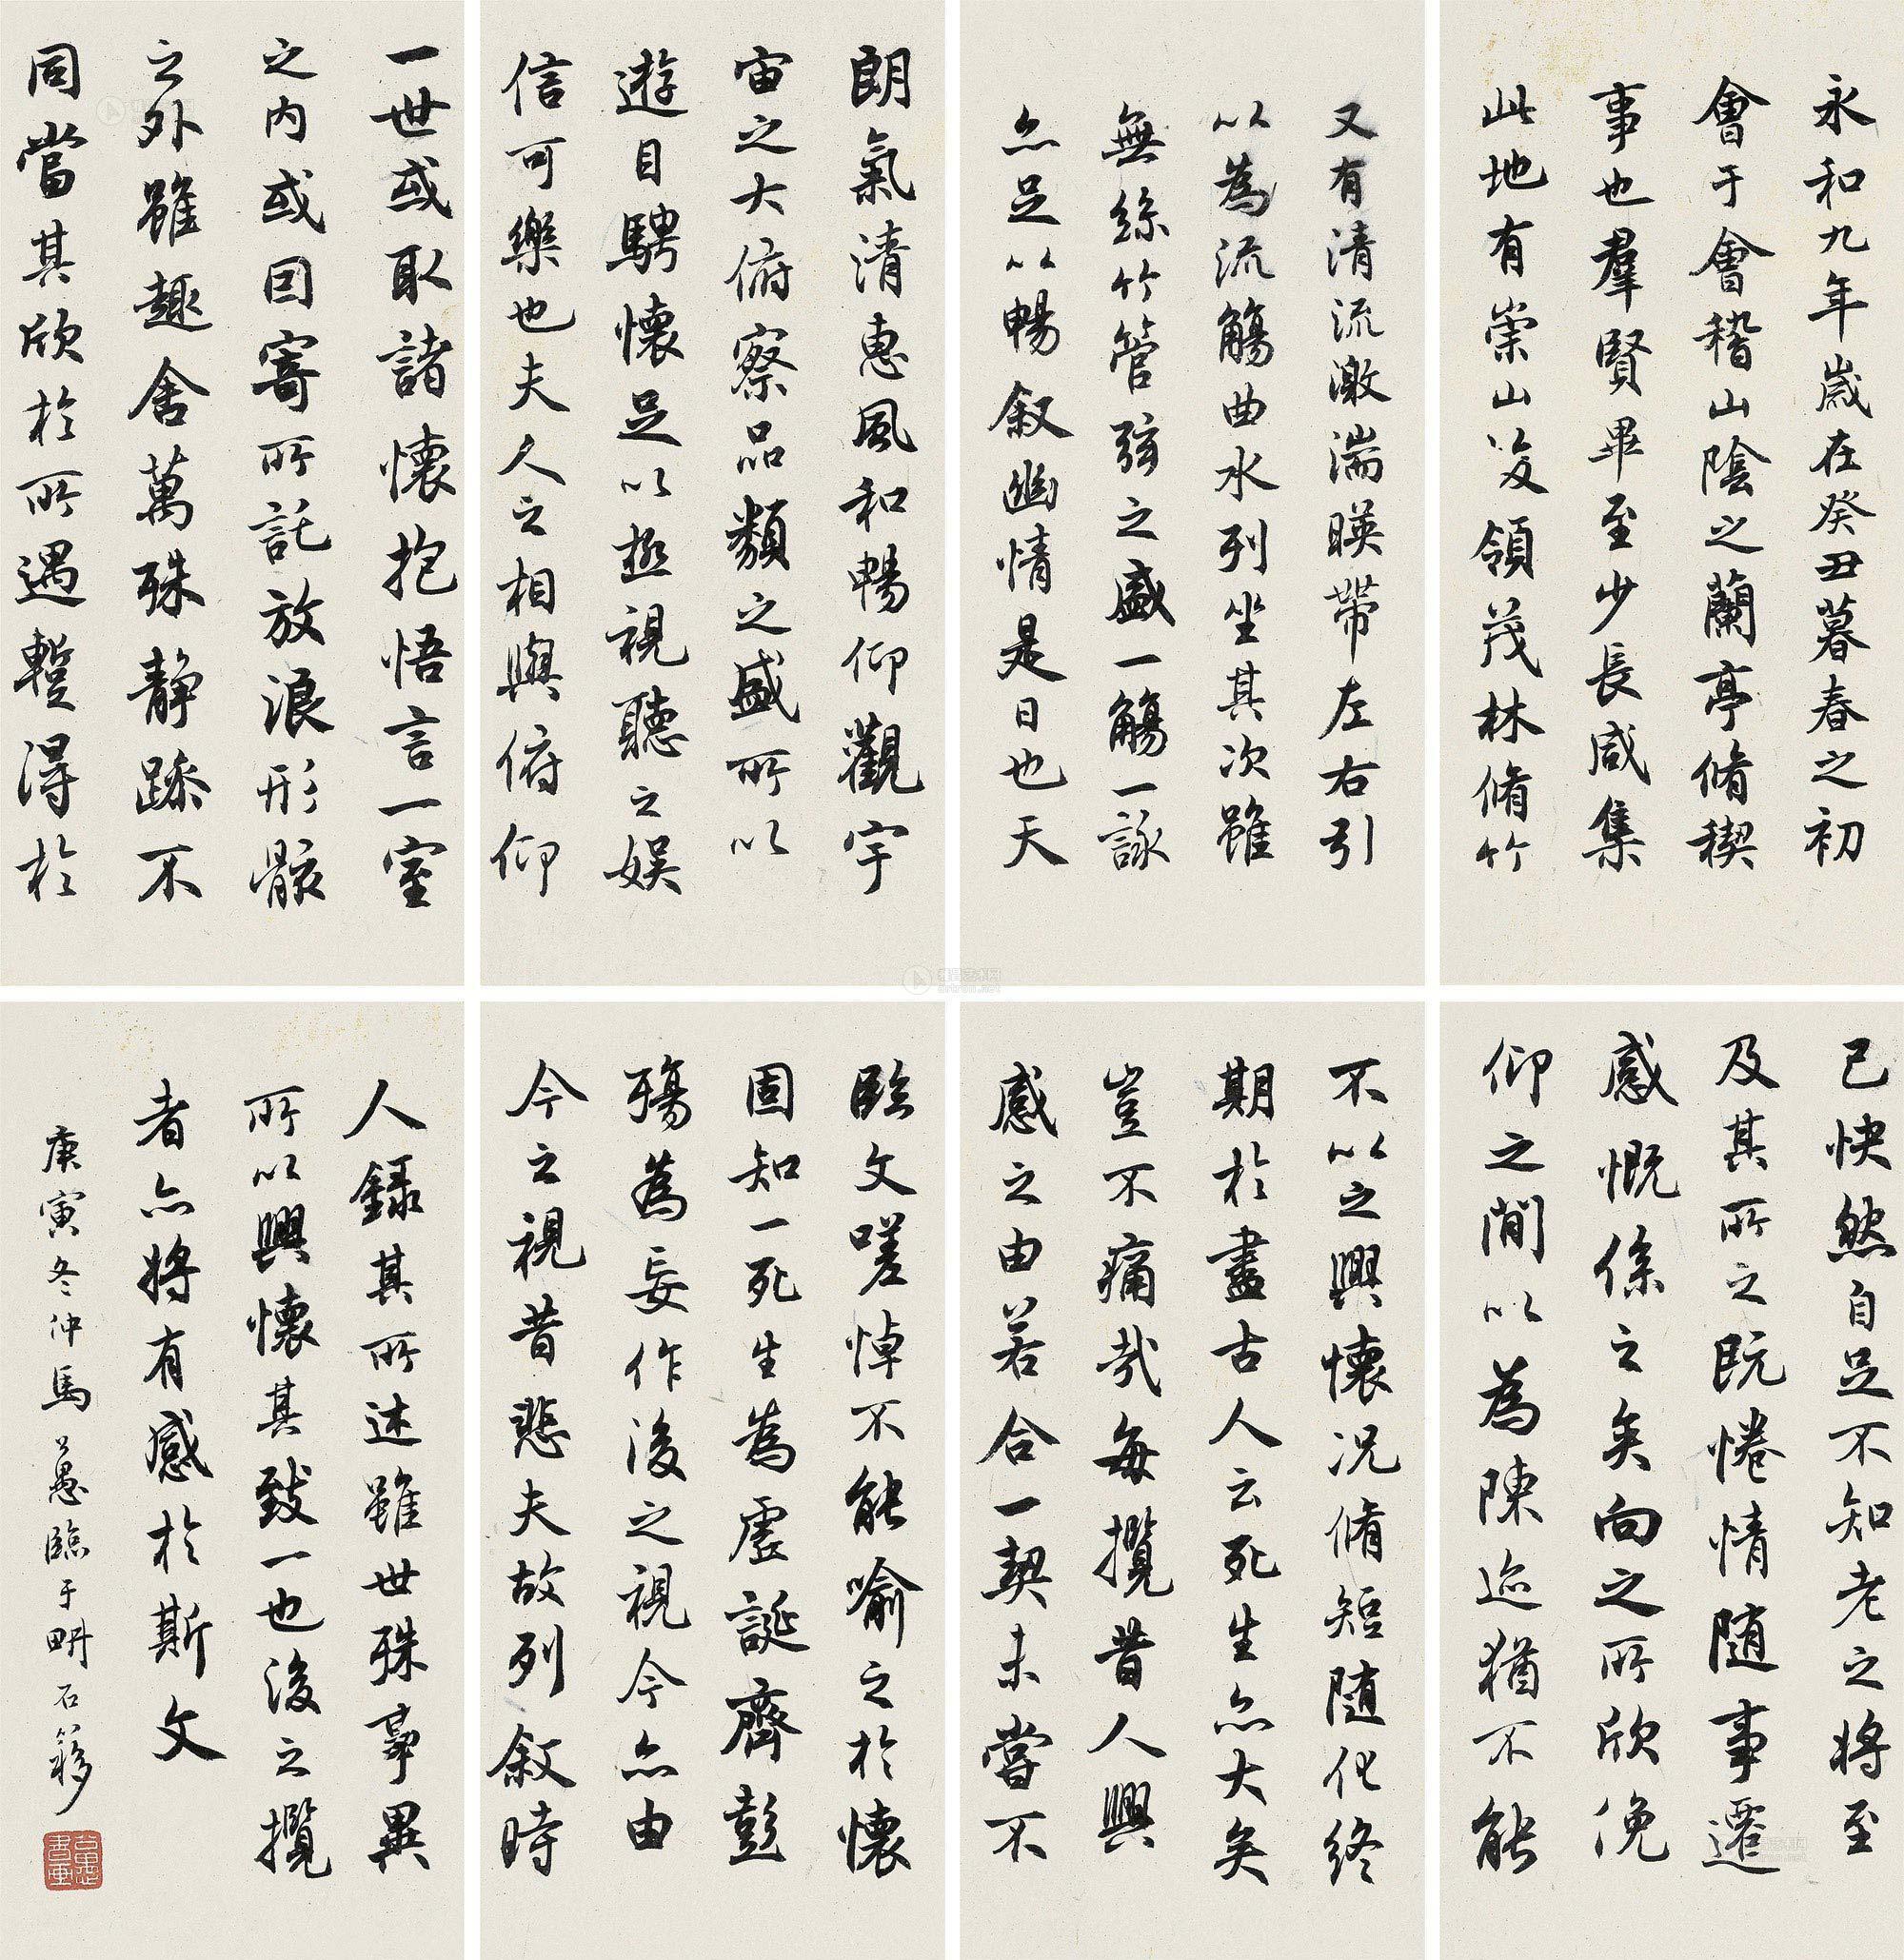 永和九年歲在癸丑暮春之初
會于會稽山陰之蘭亭脩稧
事也羣賢畢至少長咸集
此地有崇山峻領茂林脩竹
又有清流激湍暎帶左右引
以為流觴曲水列坐其次雖
無絲竹管弦之盛一觴一詠
亦足以暢叙幽情是日也天
朗氣清惠風和暢仰觀宇
宙之大俯察品類之盛所以
遊目騁懷足以極視聽之娛
信可樂也夫人之相與俯仰
一世或取諸懷抱悟言一室
之內或因寄所託放浪形骸
之外雖趣舍萬殊靜躁不
同當其欣於所遇暫得於
己快然自足不知老之將至
及其所之既惓情隨事遷
感慨係之矣向之所欣俛
仰之閒以為陳迹猶不能
不以之興懷況脩短隨化終
期於盡古人云死生亦大矣
豈不痛哉每攬昔人興
感之由若合一契未嘗不
臨文嗟悼不能喻之於懷
固知一死生為虛誕齊彭
殤為妄作後之視今亦由
今之視昔悲夫故列叙時
人錄其所述雖世殊事異
所以興懷其致一也後之攬
者亦將有感於斯文
庚寅冬仲馬公愚臨于畊石簃
公愚書畫